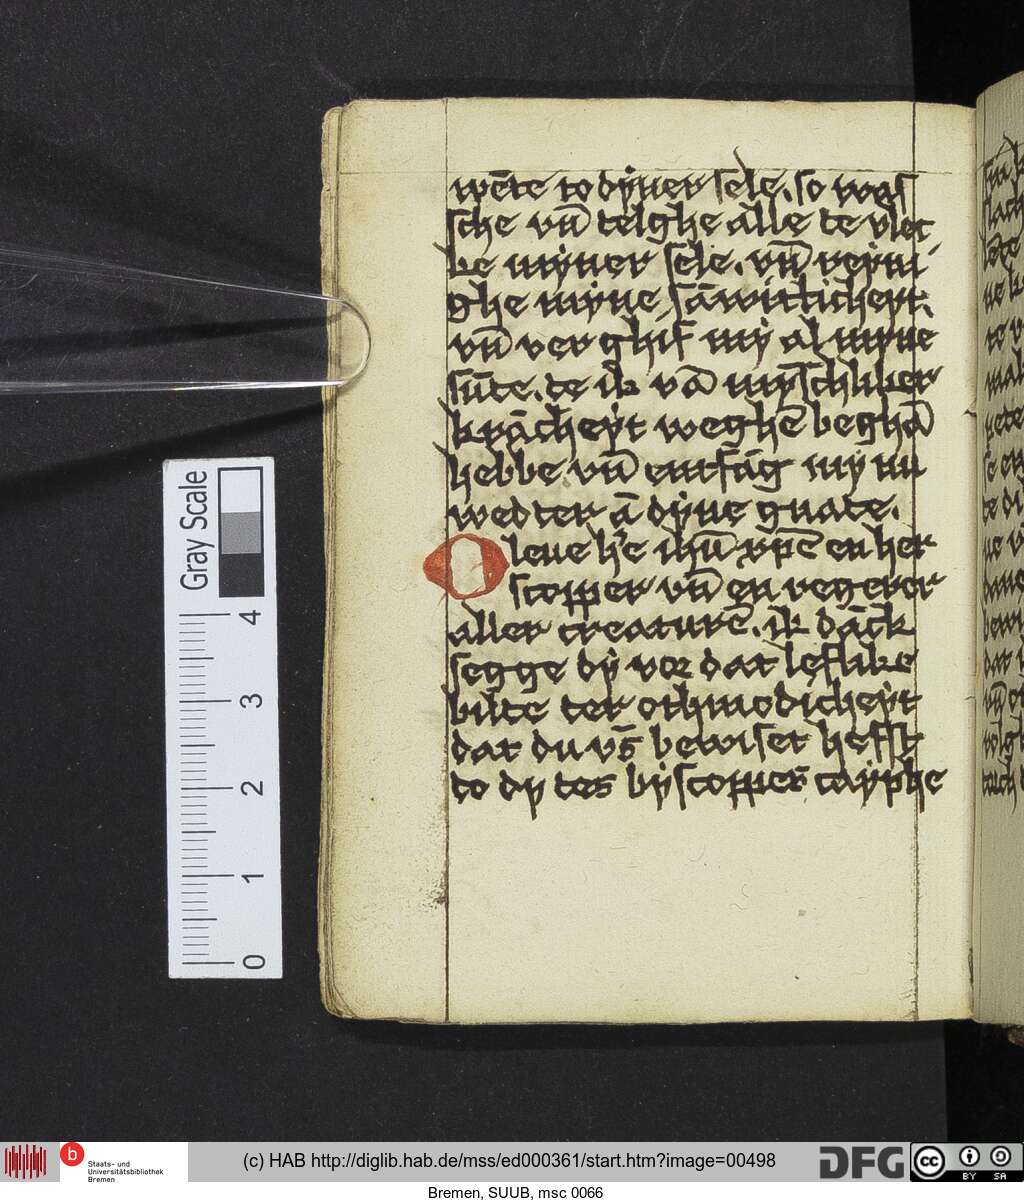 wēte to dyner sele. so waſ
ſche vn̄ telghe alle te vlec
ke myner ſele. vn̄ reyni
ghe myne ſāwitticheyt.
vn̄ ver ghif my al myne
sūte. te ik vā mȳſchliker
krācheyt weghē beghā
hebbe vn̄ entfāg my nu
wedter ā dyne gnate.
O leue h̄e ihū xp̄e en her
ſcopper vn̄ en regerer
aller creaturē. ik dāck
segge dy vor dat leflike
bilte ter othmodicheyt
dat du vs̄ bewiset hefſt
to dy tes byſcopper̄ cayphe
Gray Scale
4
3
2
1
0
b
Staats- und
Universitätsbibliothek
Bremen
(c) HAB http://diglib.hab.de/mss/ed000361/start.htm?image=00498
DFG
cc
BY SA
Bremen, SUUB, msc 0066